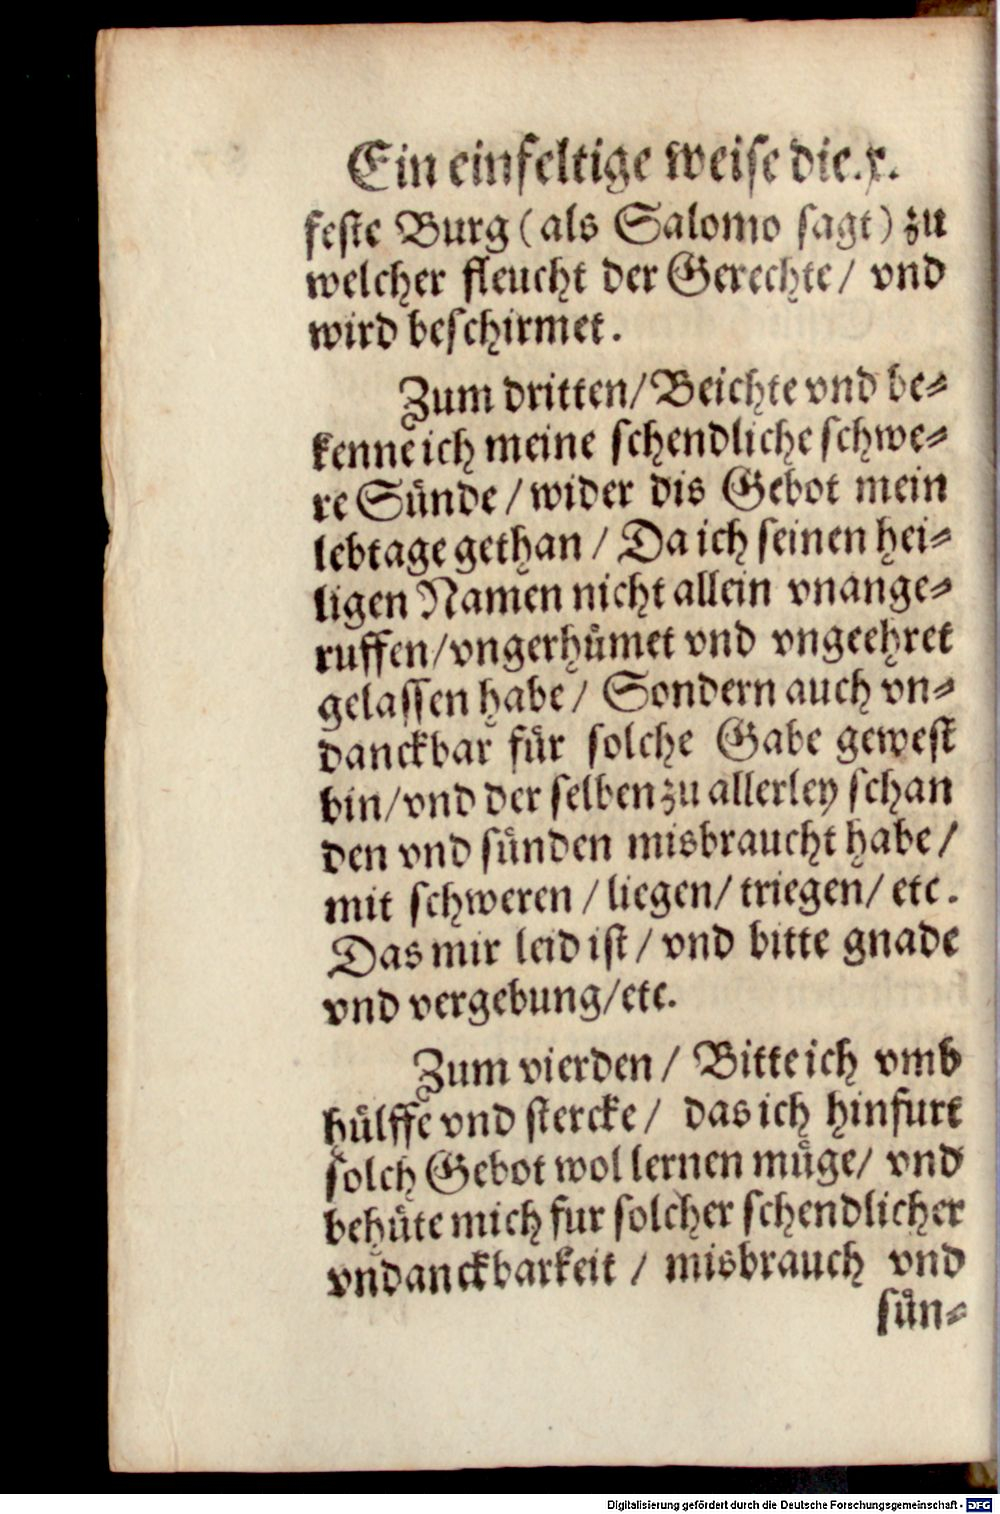 Ein einfeltige weise die.x.
feste Burg (als Salomo sagt) zu
welcher fleucht der Gerechte / vnd
wird beschirmet.
Zum dritten / Beichte vnd be=
kenne ich meine schendliche schwe=
re Sünde / wider dis Gebot mein
lebtage gethan / Da ich seinen hei=
ligen Namen nicht allein vnange=
ruffen / vngerhümet vnd vngeehret
gelassen habe / Sondern auch vn=
danckbar für solche Gabe gewest
bin / vnd der selben zu allerley schan
den vnd sünden misbraucht habe /
mit schweren / liegen / triegen / etc.
Das mir leid ist / vnd bitte gnade
vnd vergebung / etc.
Zum vierden / Bitte ich vmb
hülffe vnd stercke / das ich hinfurt
solch Gebot wol lernen müge / vnd
behüte mich fur solcher schendlicher
vndanckbarkeit / misbrauch vnd
sün=
Digitalisierung gefördert durch die Deutsche Forschungsgemeinschaft - DFG